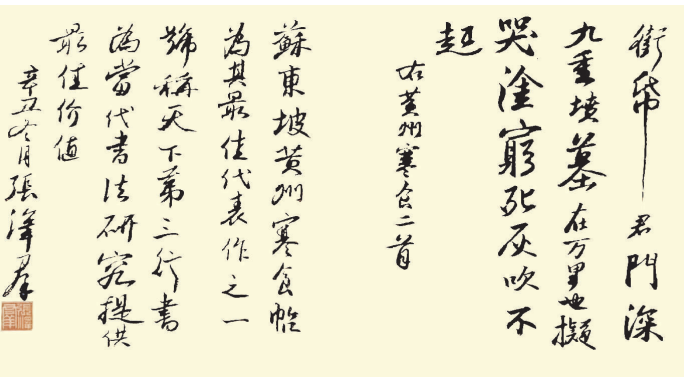 銜帋君門深
九重墳墓在万里也擬
哭塗窮死灰吹不
起
右黄州寒食二首
蘇東坡黄州寒食帖
為其最佳代表作之一
號稱天下第三行書
為當代書法研究提供
最佳价值
辛丑冬月張澤群